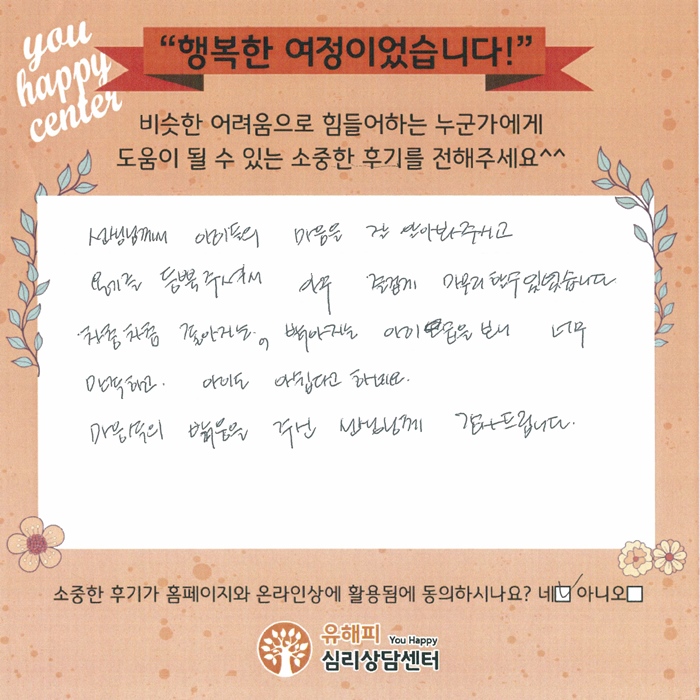 you
happy
center
“행복한 여정이었습니다!”
비슷한 어려움으로 힘들어하는 누군가에게
도움이 될 수 있는 소중한 후기를 전해주세요^^
선생님께서 아이들의 마음을 잘 알아봐주시고
용기를 듬뿍 주셔서 너무 즐겁게 마무리 할수 있었습니다
차츰차츰 좋아지는, 밝아지는 아이 모습을 보니 너무
만족하고. 아이도 아쉽다고 하네요.
마음속의 밝음을 주신 선생님께 감사드립니다.
소중한 후기가 홈페이지와 온라인상에 활용됨에 동의하시나요? 네☑ 아니오☐
유해피 You Happy
심리상담센터